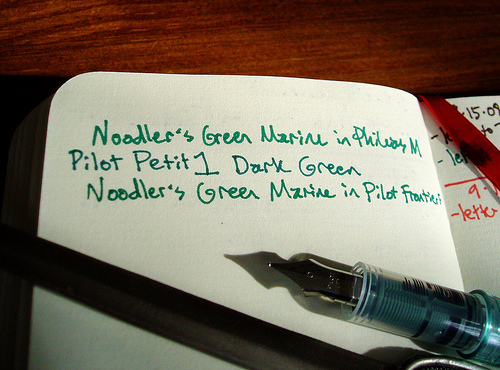 Noodler's Green Marine in Phileas M
Pilot Petit1 Dark Green
Noodler's Green Marine in Pilot Frontier
15.09
- letter
9.
-letter